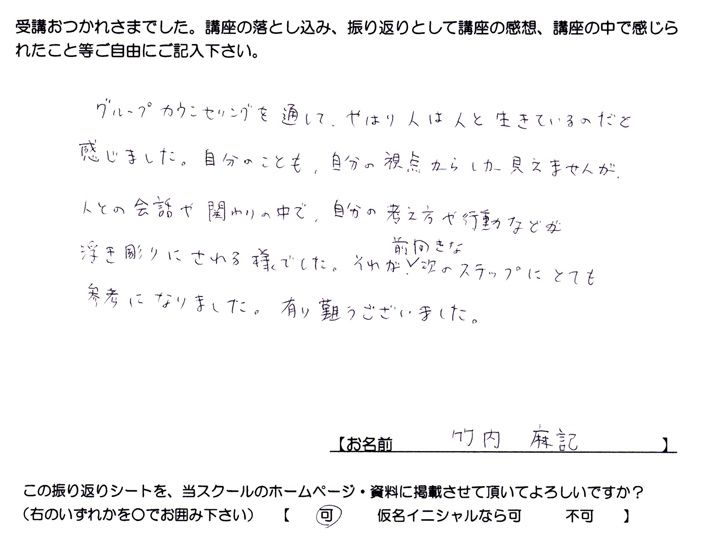 受講おつかれさまでした。講座の落とし込み、振り返りとして講座の感想、講座の中で感じら
れたこと等ご自由にご記入下さい。
グループカウンセリングを通して、やはり人は人と生きているのだと
感じました。自分のことも、自分の視点からしか見えませんが、
人との会話や関わりの中で、自分の考え方や行動などが
浮き彫りにされる様でした。それが、前向きな次のステップにとても
参考になりました。有り難うございました。
【お名前 竹内 麻記 】
この振り返りシートを、当スクールのホームページ・資料に掲載させて頂いてよろしいですか？
（右のいずれかを〇でお囲み下さい） 【 可 仮名イニシャルなら可 不可 】